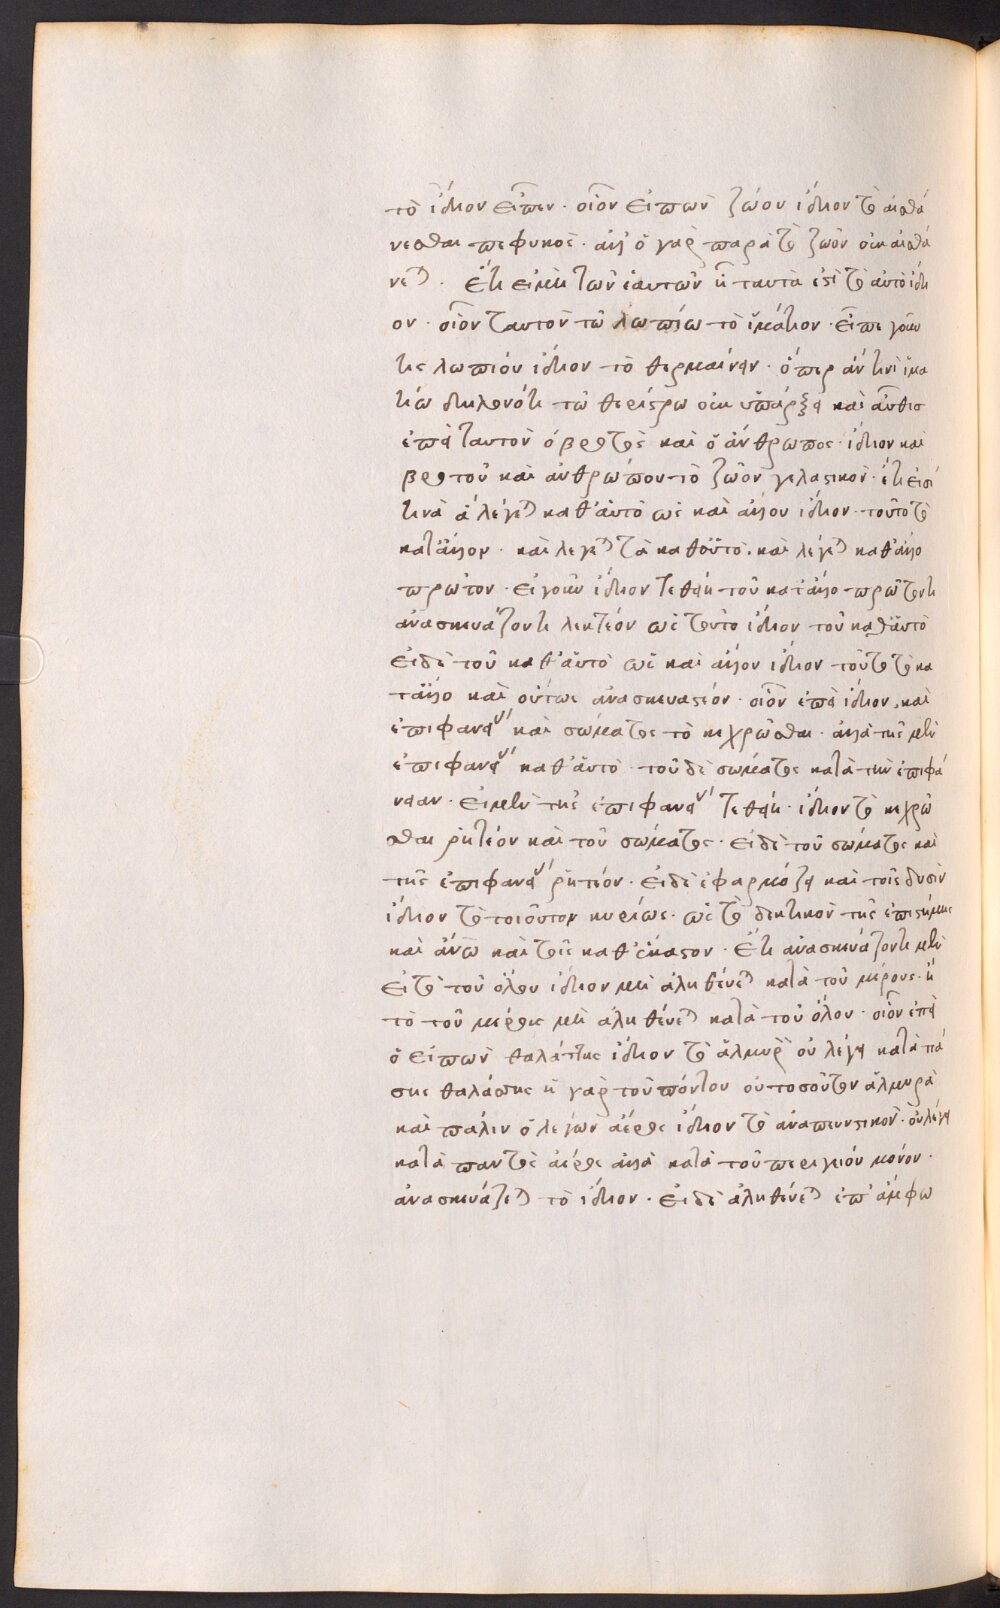 τὸ ἴδιον εἶπεν · οἷον εἰπὼν ζώου ἴδιον τὸ αἰσθά
νεσθαι πεφυκὸς · ἀλλ' ὁ γὰρ παρὰ τὸ ζῶον οὐκ αἰσθά
νεται · Ἔτι εἰ μὴ τῶν ἑαυτῶν ᾗ ταυτὰ ἐστὶ τὸ αὐτὸ ἴδι
ον · οἷον ταυτὸν τῶ λωπίω τὸ ἱμάτιον · εἶπε γοῦν
τις λωπίου ἴδιον τὸ θερμαίνειν · ὅπερ ἄν τινι ἱμα
τίω δηλονότι τῶ θερίστρω οὐκ ὑπάρξει καὶ αὖθισ
ἐπεὶ ταυτὸν ὁ βροτὸς καὶ ὁ ἄνθρωπος · ἴδιον καὶ
βροτοῦ καὶ ἀνθρώπου τὸ ζῶον γελαστικόν · ἔτι εἰσί
τινὰ ἃ λέγεται καθ' αὑτὸ ὡς καὶ ἄλλου ἴδιον · τοῦτο τὸ
κατ' ἄλλου · καὶ λέγεται τὰ καθ' αὑτὸ · καὶ λέγεται κατ' ἄλλο
πρῶτον · εἰ γοῦν ἴδιον τεθείη τοῦ κατ' ἄλλο πρώτου τι
ἀνασκευάζοντι λεκτέον ὡς τοῦτο ἴδιον τοῦ καθ' αὑτὸ
εἰ δὲ τοῦ καθ' αὑτὸ ὡς καὶ ἄλλου ἴδιον τοῦτο τὸ κα
τ' ἄλλο καὶ οὕτως ἀνασκευαστέον · οἷον ἐπεὶ ἴδιον, καὶ
ἐπιφανείας καὶ σώματος τὸ κεχρῶσθαι · ἀλλὰ τῆς μὲν
ἐπιφανείας καθ' αὑτὸ · τοῦ δὲ σώματος κατὰ τὴν ἐπιφά
νειαν · εἰ μὲν τῆς ἐπιφανείας τεθείη · ἴδιον τὸ κεχρῶ
σθαι ῥητέον καὶ τοῦ σώματος · εἰ δὲ τοῦ σώματος καὶ
τῆς ἐπιφανείας ῥητέον · εἰ δὲ ἐφαρμόζει καὶ τοῖς δυσὶν
ἴδιον τὸ τοιοῦτον κυρίως · ὡς τὸ δεκτικὸν τῆς ἐπιστήμης
καὶ ἄνω καὶ τοῖς καθ' ἕκαστον · Ἔτι ἀνασκευάζοντι μὲν
εἰ τὸ τοῦ ὅλου ἴδιον μὴ ἀληθεύεται κατὰ τοῦ μέρους · ἢ
τὸ τοῦ μέρους μὴ ἀληθεύεται κατὰ τοῦ ὅλου · οἷον ἐπεὶ
ὁ εἰπὼν θαλάττης ἴδιον τὸ ἁλμυρὸν οὐ λέγει κατὰ πά
σης θαλάσσης ἡ γὰρ τοῦ πόντου οὐ τοσοῦτον ἁλμυρὰ
καὶ πάλιν ὁ λέγων ἀέρος ἴδιον τὸ ἀναπνευστικὸν · οὐ λέγει
κατὰ παντὸς ἀέρος ἀλλὰ κατὰ τοῦ περιγείου μόνον ·
ἀνασκευάζεται τὸ ἴδιον · εἰ δὲ ἀληθεύεται ἐπ' ἄμφω